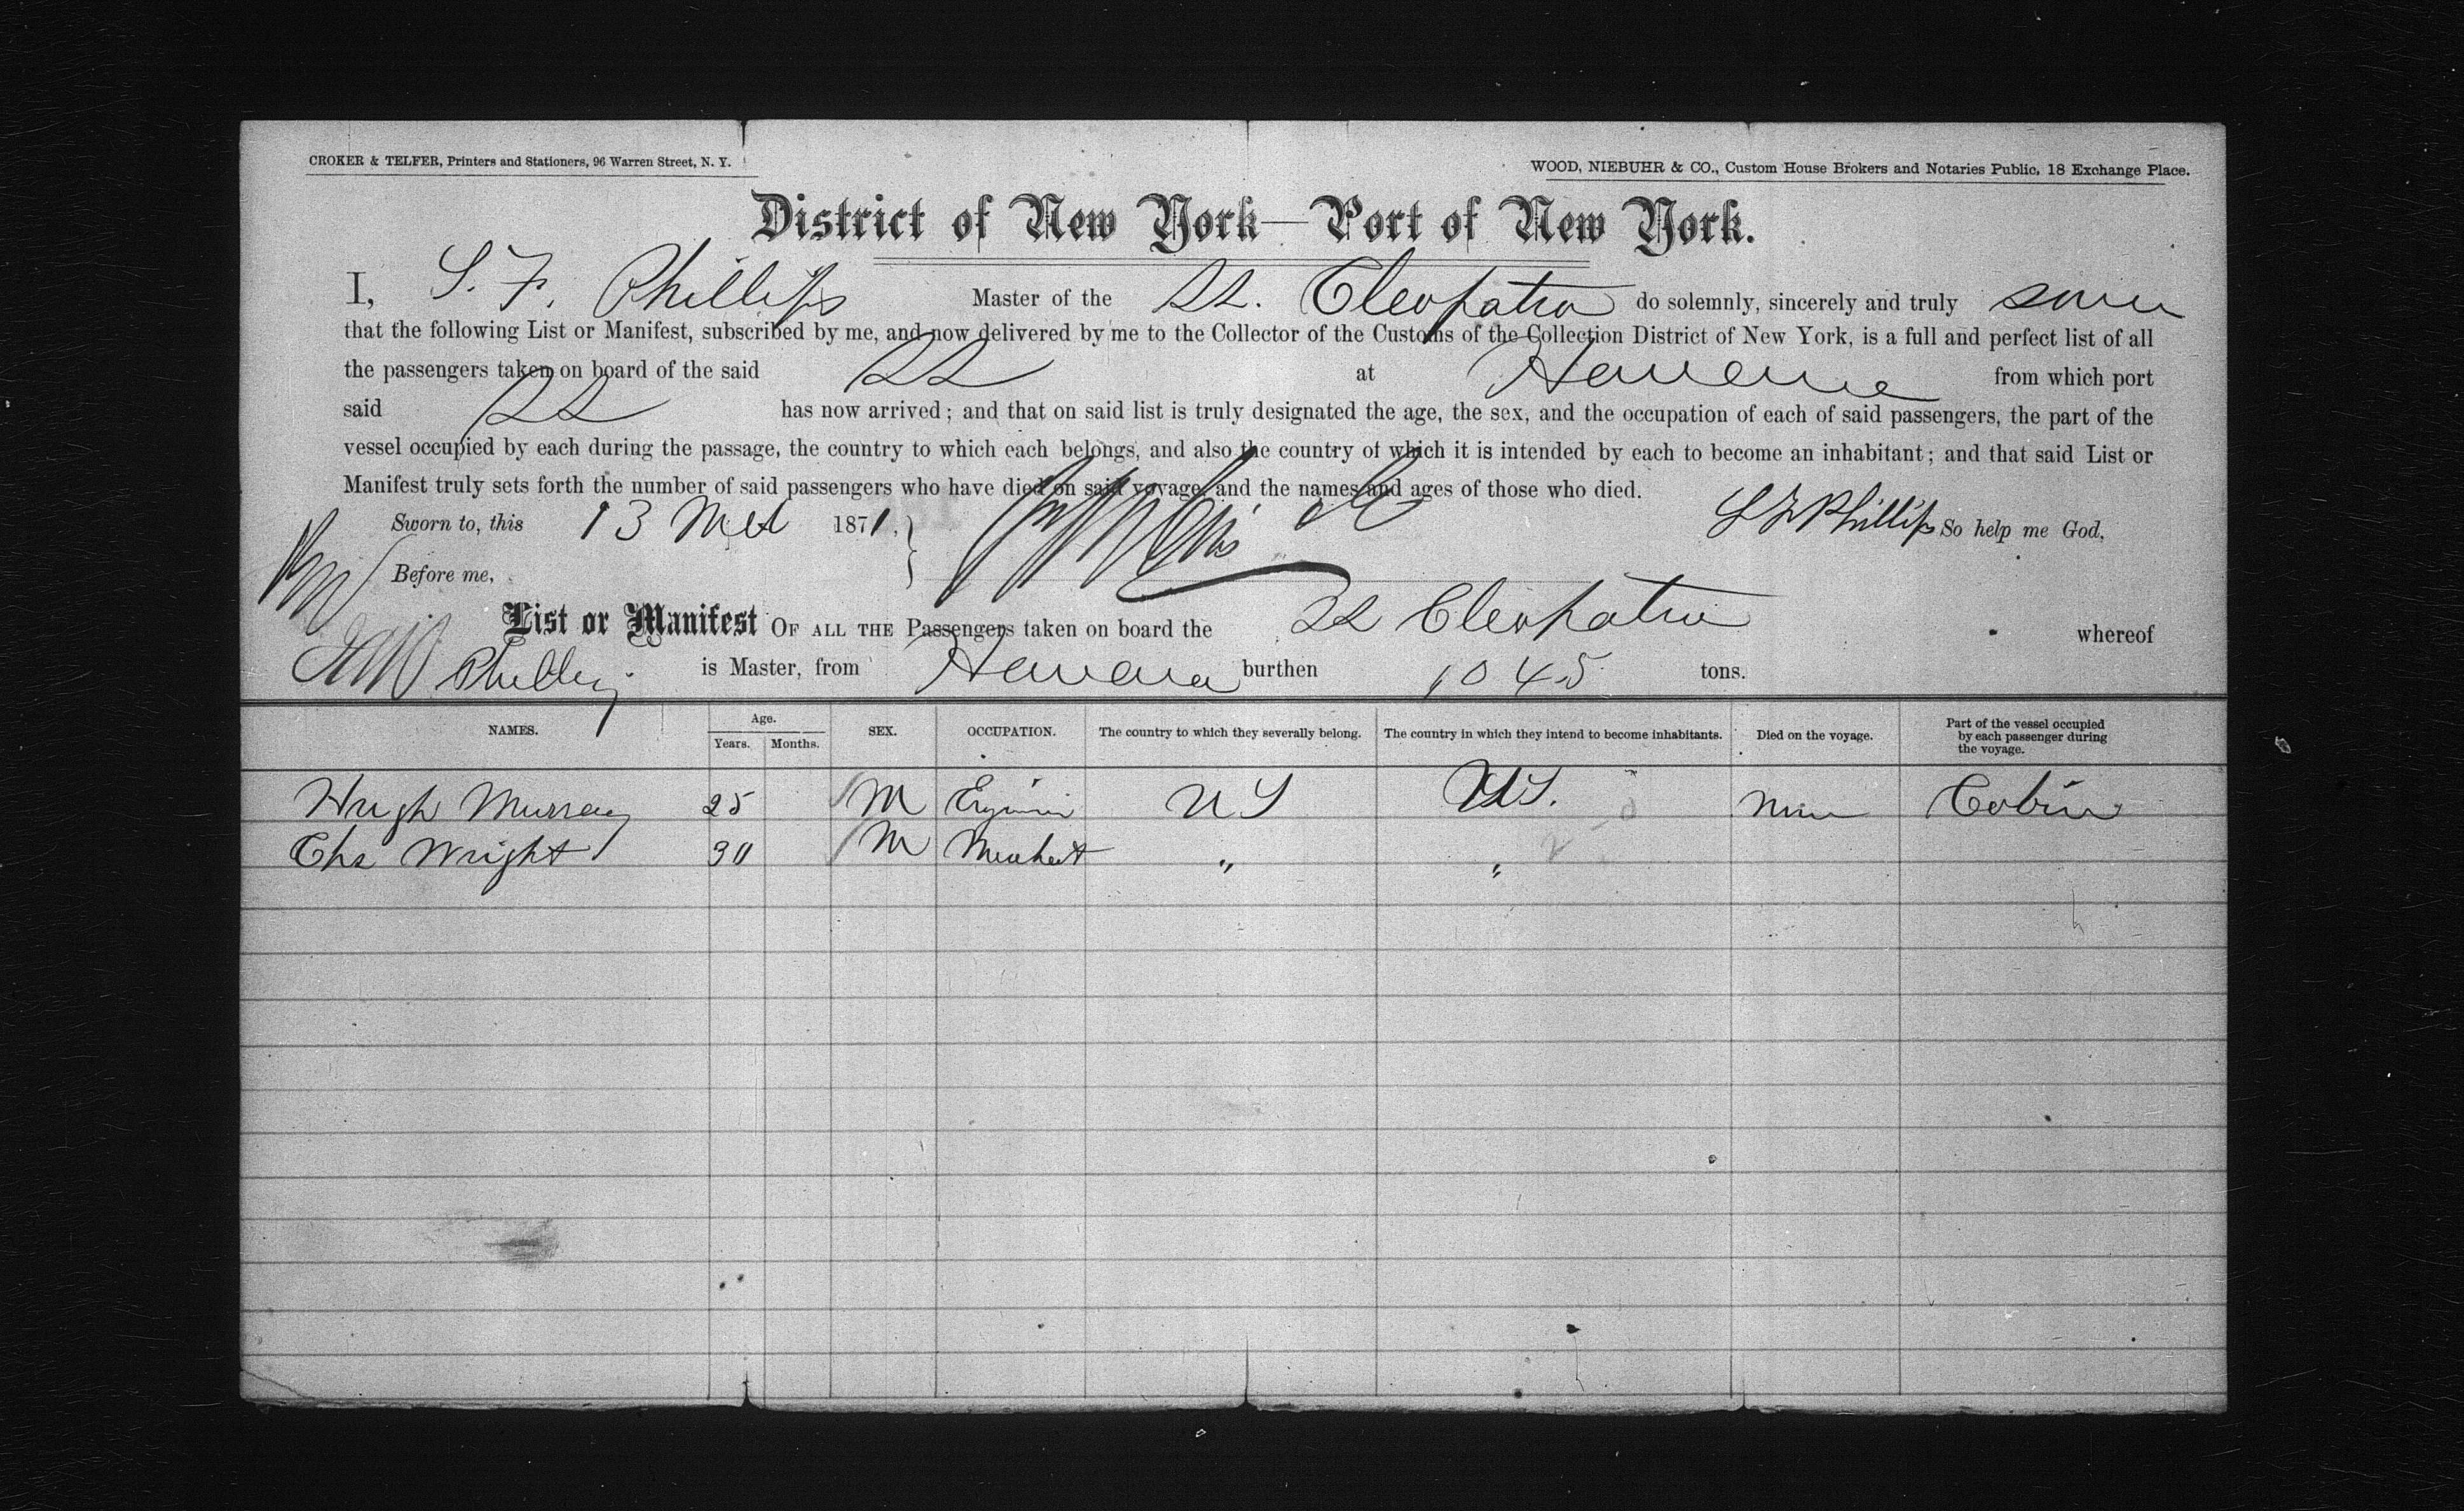 CROKER & TELFER, Printers and Stationers, 96 Warren Street, N. Y.
WOOD, NIEBUHR & CO., Custom House Brokers and Notaries Public, 18 Exchange Place.
District of New York—Port of New York.
I, S. F. Phillips Master of the SS. Cleopatra do solemnly, sincerely and truly
that the following List or Manifest, subscribed by me, and now delivered by me to the Collector of the Customs of the Collection District of New York, is a full and perfect list of all
the passengers taken on board of the said SS at Havana from which port
said SS has now arrived; and that on said list is truly designated the age, the sex, and the occupation of each of said passengers, the part of the
vessel occupied by each during the passage, the country to which each belongs, and also the country of which it is intended by each to become an inhabitant; and that said List or
Manifest truly sets forth the number of said passengers who have died on said voyage, and the names and ages of those who died.
Sworn to, this 13 1871, S F Phillips So help me God,
Before me,
List or Manifest OF ALL THE Passengers taken on board the SS Cleopatra whereof
Phillips is Master, from Havana burthen 1045 tons.
NAMES. Age. Years. Months. SEX. OCCUPATION. The country to which they severally belong. The country in which they intend to become inhabitants. Died on the voyage. Part of the vessel occupied by each passenger during the voyage.
Hugh Murray 25 M Engineer U S U S. None Cabin
Chs Wright 30 M Merchant " "